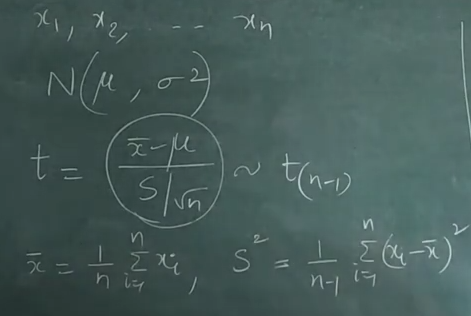 x₁, x₂, -- xₙ
N(μ, σ²)
t = (x̄-μ)/(S/√n) ~ t₍ₙ₋₁₎
x̄ = 1/n Σᵢ₌₁ⁿ xᵢ, S² = 1/(n-1) Σᵢ₌₁ⁿ (xᵢ-x̄)²